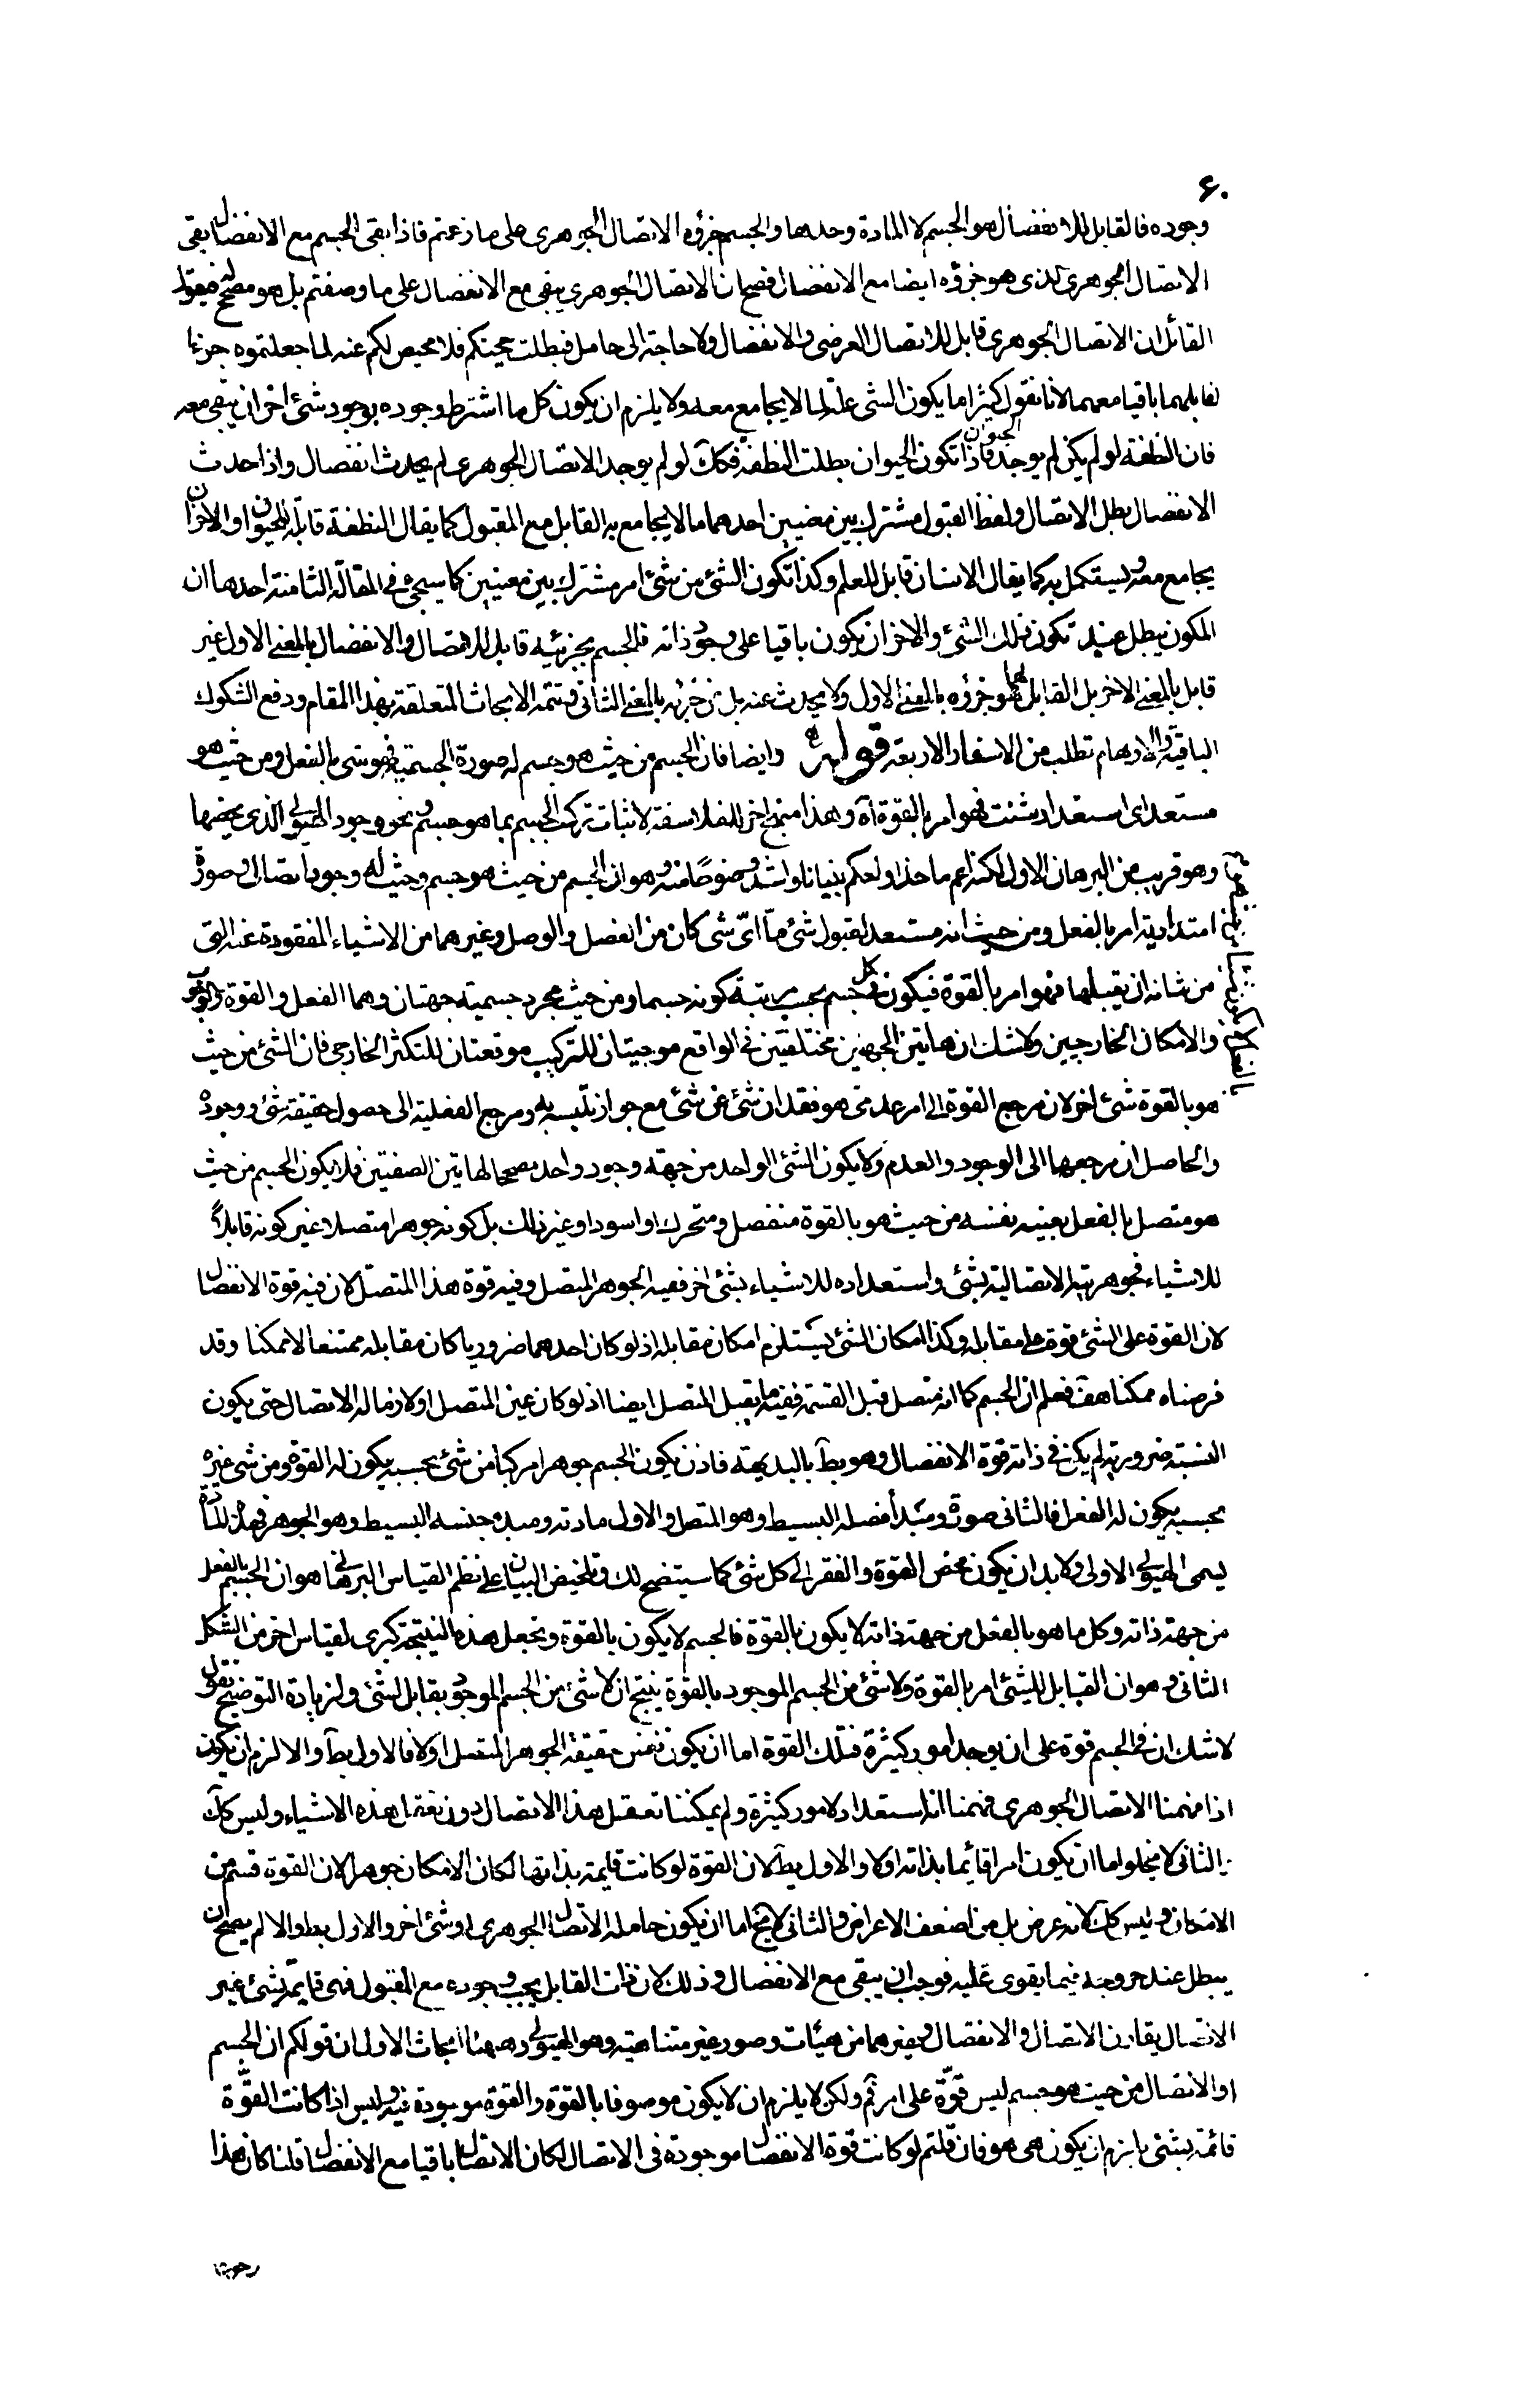 ۶۰
وجوده فالقابل للانفصال هو الجسم لا المادة وحدها والجسم جزؤه الاتصال الجوهرى على ما زعمتم فاذا بقى الجسم مع الانفصال بقى
الاتصال الجوهرى الذى هو جزؤه ايضا مع الانفصال فصح ان الاتصال الجوهرى يبقى مع الانفصال على ما وصفتم بل هو مصحح له فيقول
القائل ان الاتصال الجوهرى قابل للاتصال العرضى والانفصال ولا حاجة الى حامل فبطلت حجتكم فلا محيص لكم عنه لما جعلتموه جزءا
لقابلهما باقيا معهما لانا نقول كثيرا ما يكون الشئ علة لما لا يجامع معه ولا يلزم ان يكون كل ما اشترط وجوده بوجود شئ اخر ان يبقى معه
فان النطفة لو لم يكن لم يوجد الحيوان فاذا تكون الحيوان بطلت النطفة فكك لو لم يوجد الاتصال الجوهرى لم يحدث انفصال واذا حدث
الانفصال بطل الاتصال ولفظ القبول مشترك بين معنيين احدهما ما لا يجامع به القابل مع المقبول كما يقال النطفة قابلة للحيوان والاخر ان
يجامع معه ويستكمل به كما يقال الانسان قابل للعلم وكذا تكون الشئ من شئ امر مشترك بين معنيين كما سيجئ فى المقالة الثامنة احدها ان
المكون يبطل عند تكون ذلك الشئ والاخر ان يكون باقيا على وجود ذاته فالجسم بجزئيه قابل للاتصال والانفصال بالمعنى الاول غير
قابل بالمعنى الاخر بل القابل لهما هو جزؤه بالمعنى الاول ولا يحدث عنه بل من جزئه بالمعنى الثانى وتتمة الابحاث المتعلقة بهذا المقام ودفع الشكوك
الباقية والاوهام تطلب من الاسفار الاربعة قوله وايضا فان الجسم من حيث هو جسم له صورة الجسمية فهو شئ بالفعل ومن حيث هو
مستعد اى استعداد شئت فهو امر بالقوة اه وهذا منهج اخر للفلاسفة لاثبات تركب الجسم بما هو جسم ونحو وجود الهيولى الذى يخصها
وهو قريب من البرهان الاول لكنه اعم ماخذا واحكم بنيانا واشد وضوحا منه وهو ان الجسم من حيث هو جسم وحيث له وجود اتصالى وصورة
امتدادية امر بالفعل ومن حيث انه مستعد لقبول شئ ما اى شئ كان من الفصل والوصل وغيرهما من الاشياء المفقودة عنه التى
من شانه ان يقبلها فهو امر بالقوة فيكون فى كل جسم بحسب مرتبة كونه جسما ومن حيث مجرد جسميته جهتان وهما الفعل والقوة والوجوب
والامكان الخارجيين ولا شك ان هاتين الجهتين مختلفتين فى الواقع موجبتان للتركيب موقعتان للتكثر الخارجى فان الشئ من حيث
هو بالقوة شئ اخر لان مرجع القوة الى امر عدمى هو فقدان شئ عن شئ مع جواز تلبسه به ومرجع الفعلية الى حصول حقيقة شئ ووجوده
والحاصل ان مرجعها الى الوجود والعدم ولا يكون الشئ الواحد من جهة وجود واحد مصححا لهاتين الصفتين فلا يكون الجسم من حيث
هو متصل بالفعل بعينه نفسه من حيث هو بالقوة منفصل ومتحرك او اسود او غير ذلك بل كونه جوهرا متصلا غير كونه قابلا
للاشياء فجوهريته الاتصالية بشئ واستعداده للاشياء بشئ اخر ففيه الجوهر المتصل وفيه قوة هذا المتصل لان فيه قوة الانفصال
لان القوة على الشئ قوة على مقابله وكذا امكان الشئ يستلزم امكان مقابله اذ لو كان احدهما ضروريا كان مقابله ممتنعا لا ممكنا وقد
فرضناه ممكنا هف فعلم ان الجسم كما انه متصل قبل القسمة ففيه ما يقبل المتصل ايضا اذ لو كان عين المتصل او لازما له الاتصال حتى يكون
النسبة ضرورية لم يكن فى ذاته قوة الانفصال وهو بط بالبديهة فاذن يكون الجسم جوهرا مركبا من شئ بحسبه يكون له القوة ومن شئ غيره
بحسبه يكون له الفعل فالثانى صورته ومبدأ فصله البسيط وهو المتصل والاول مادته ومبدء جنسه البسيط وهو الجوهر فهذه المادة
يسمى الهيولى الاولى ولابد ان يكون محض القوة والفقر الى كل شئ كما سيتضح لك وتلخيص البيان على نظم القياس البرهانى هو ان الجسم بالفعل
من جهة ذاته وكل ما هو بالفعل من جهة ذاته لا يكون بالقوة فالجسم لا يكون بالقوة ونجعل هذه النتيجة كبرى لقياس اخر من الشكل
الثانى وهو ان القابل للشئ امر بالقوة ولا شئ من الجسم الموجود بالقوة ينتج ان لا شئ من الجسم الموجود بقابل لشئ ولزيادة التوضيح نقول
لا شك ان فى الجسم قوة على ان يوجد امور كثيرة فتلك القوة اما ان يكون نفس حقيقة الجوهر المتصل اولا فالاولى بط والا لزم ان يكون
اذا فهمنا الاتصال الجوهرى فهمنا انه استعداد لامور كثيرة ولم يمكننا تعقل هذا الاتصال دون تعقل هذه الاشياء وليس كك
والثانى لا يخلو اما ان يكون امرا قائما بذاته اولا والاول بط لان القوة لو كانت قايمة بذاتها لكان الامكان جوهرا لان القوة قسم من
الامكان وليس كك لانه عرض بل من اضعف الاعراض والثانى لا يخ اما ان يكون حامله الاتصال الجوهرى او شئ اخر والاول بط والا لم يصح ان
يبطل عند خروجه فيما يقوى عليه فوجب ان يبقى مع الانفصال وذلك لان ذات القابل يجب وجوده مع المقبول فهى قايمة بشئ غير
الاتصال يقارن الاتصال والانفصال وغيرهما من هيئات وصور غير متناهية وهو الهيولى وههنا ابحاث الاول ان قولكم ان الجسم
او الاتصال من حيث هو جسم ليس قوة على امر ثم ولكن لا يلزم ان لا يكون موصوفا بالقوة والقوة موجودة فيه وليس اذا كانت القوة
قائمة بشئ يلزم ان يكون هى هو فان قلتم لو كانت قوة الانفصال موجودة فى الاتصال لكان الاتصال باقيا مع الانفصال قلنا كان هذا